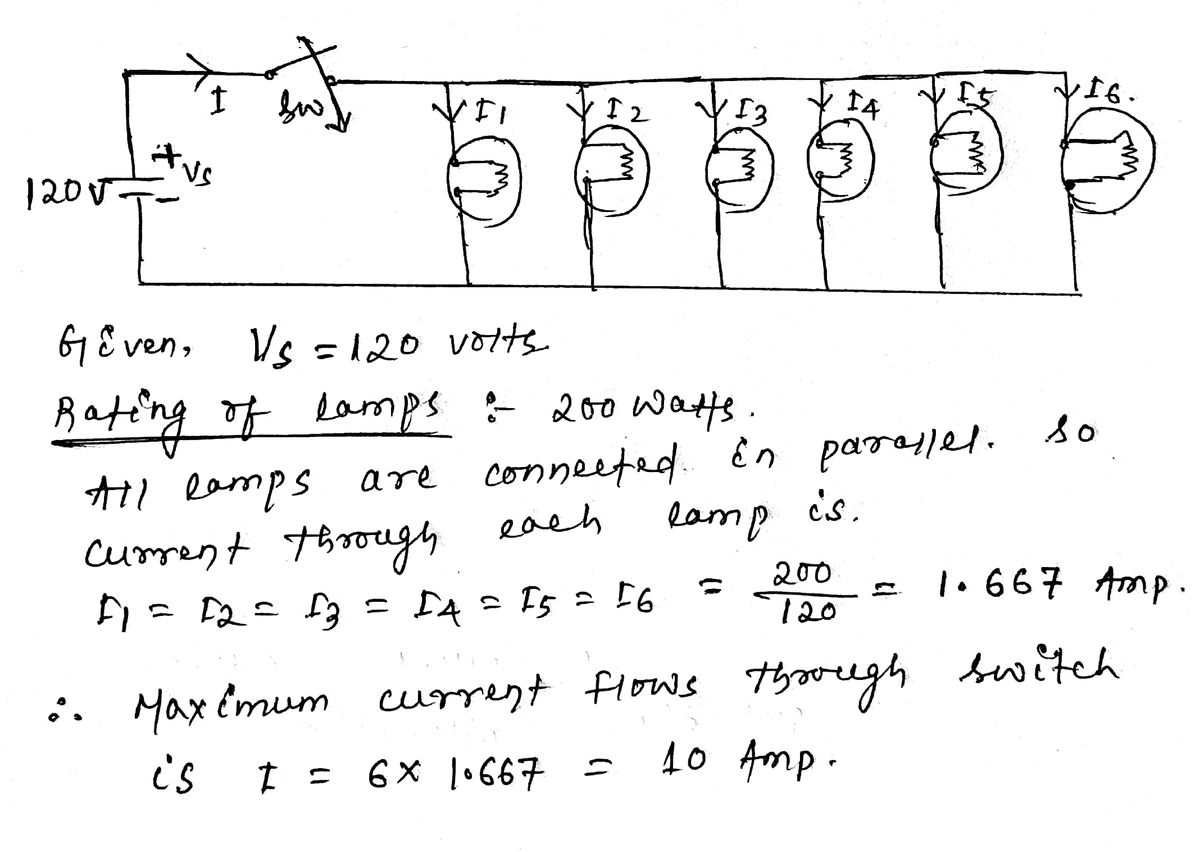 I SW I1 I2 I3 I4 I5 I6.
120V + VS -
Given, VS = 120 volts
Rating of lamps :- 200 Watts.
All lamps are connected in parallel. so
current through each lamp is.
I1 = I2 = I3 = I4 = I5 = I6 = 200/120 = 1.667 Amp.
∴ Maximum current flows through switch
is I = 6 x 1.667 = 10 Amp.